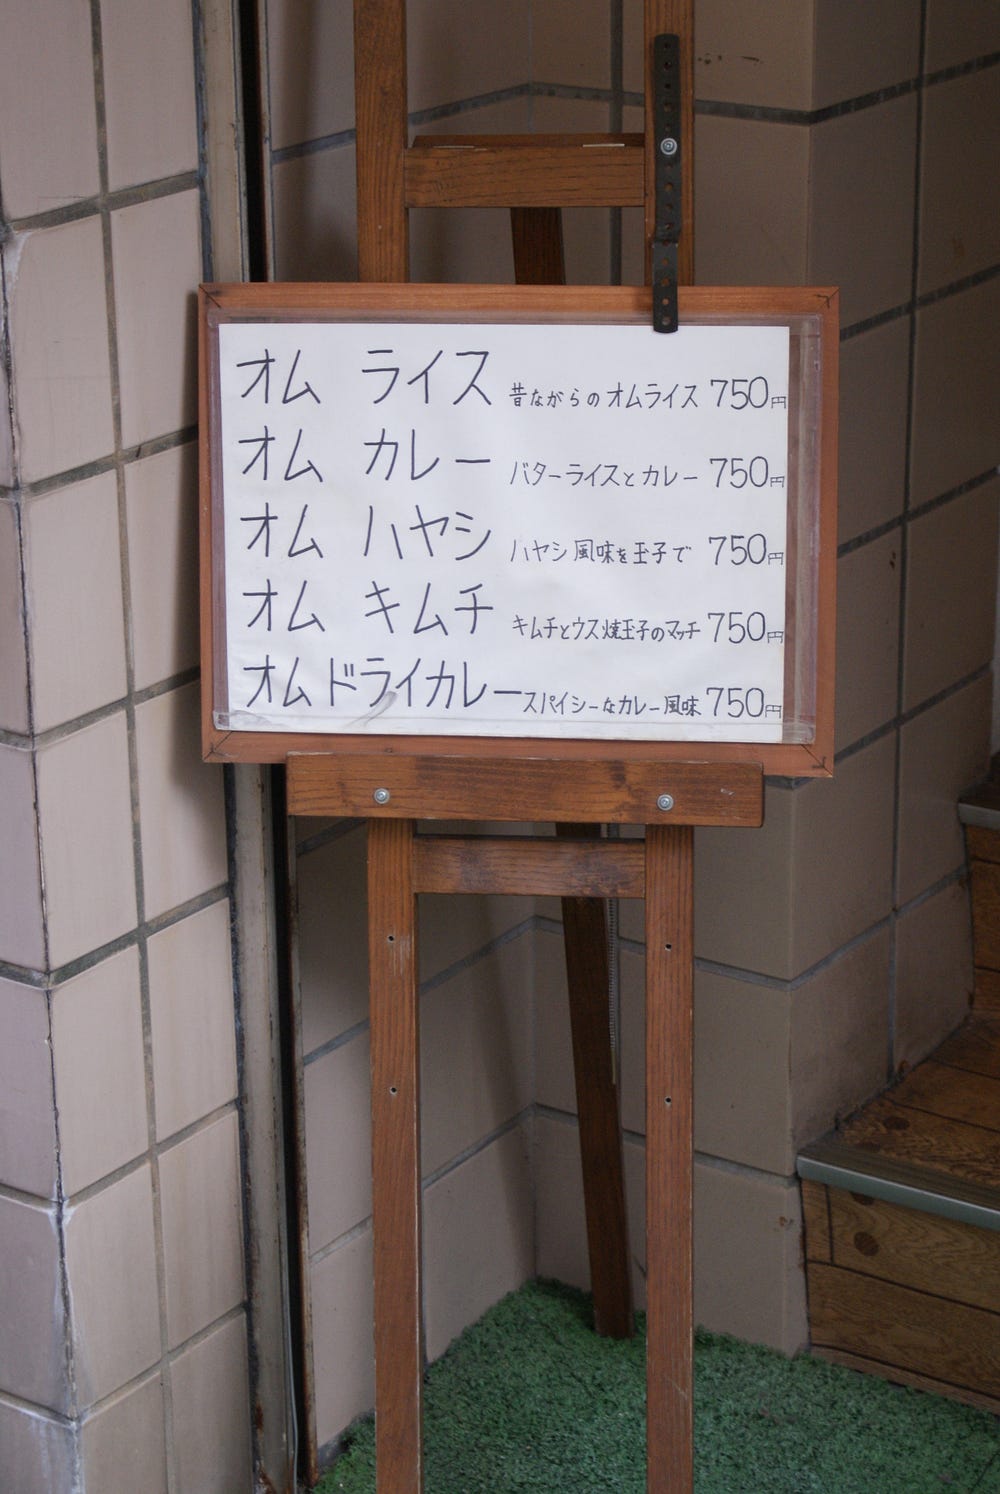 オム ライス 昔ながらのオムライス 750円
オム カレー バターライスとカレー 750円
オム ハヤシ ハヤシ風味を玉子で 750円
オム キムチ キムチとウス焼玉子のマッチ 750円
オムドライカレー スパイシーなカレー風味 750円